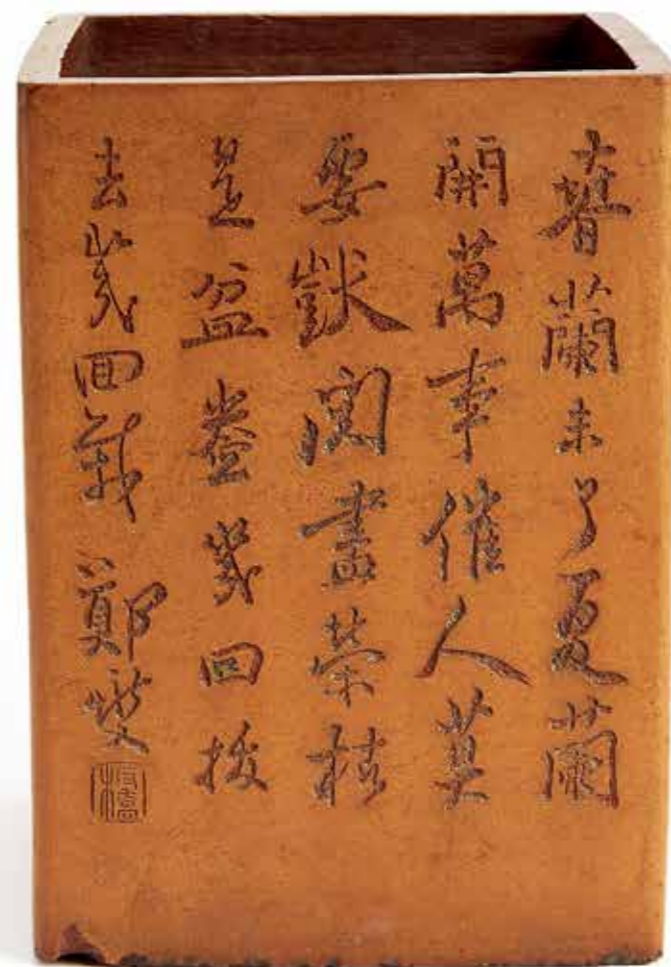 春蘭未了夏蘭
開萬事催人莫
要獃閱盡榮枯
是盆盎幾回拔
去幾回栽 鄭燮